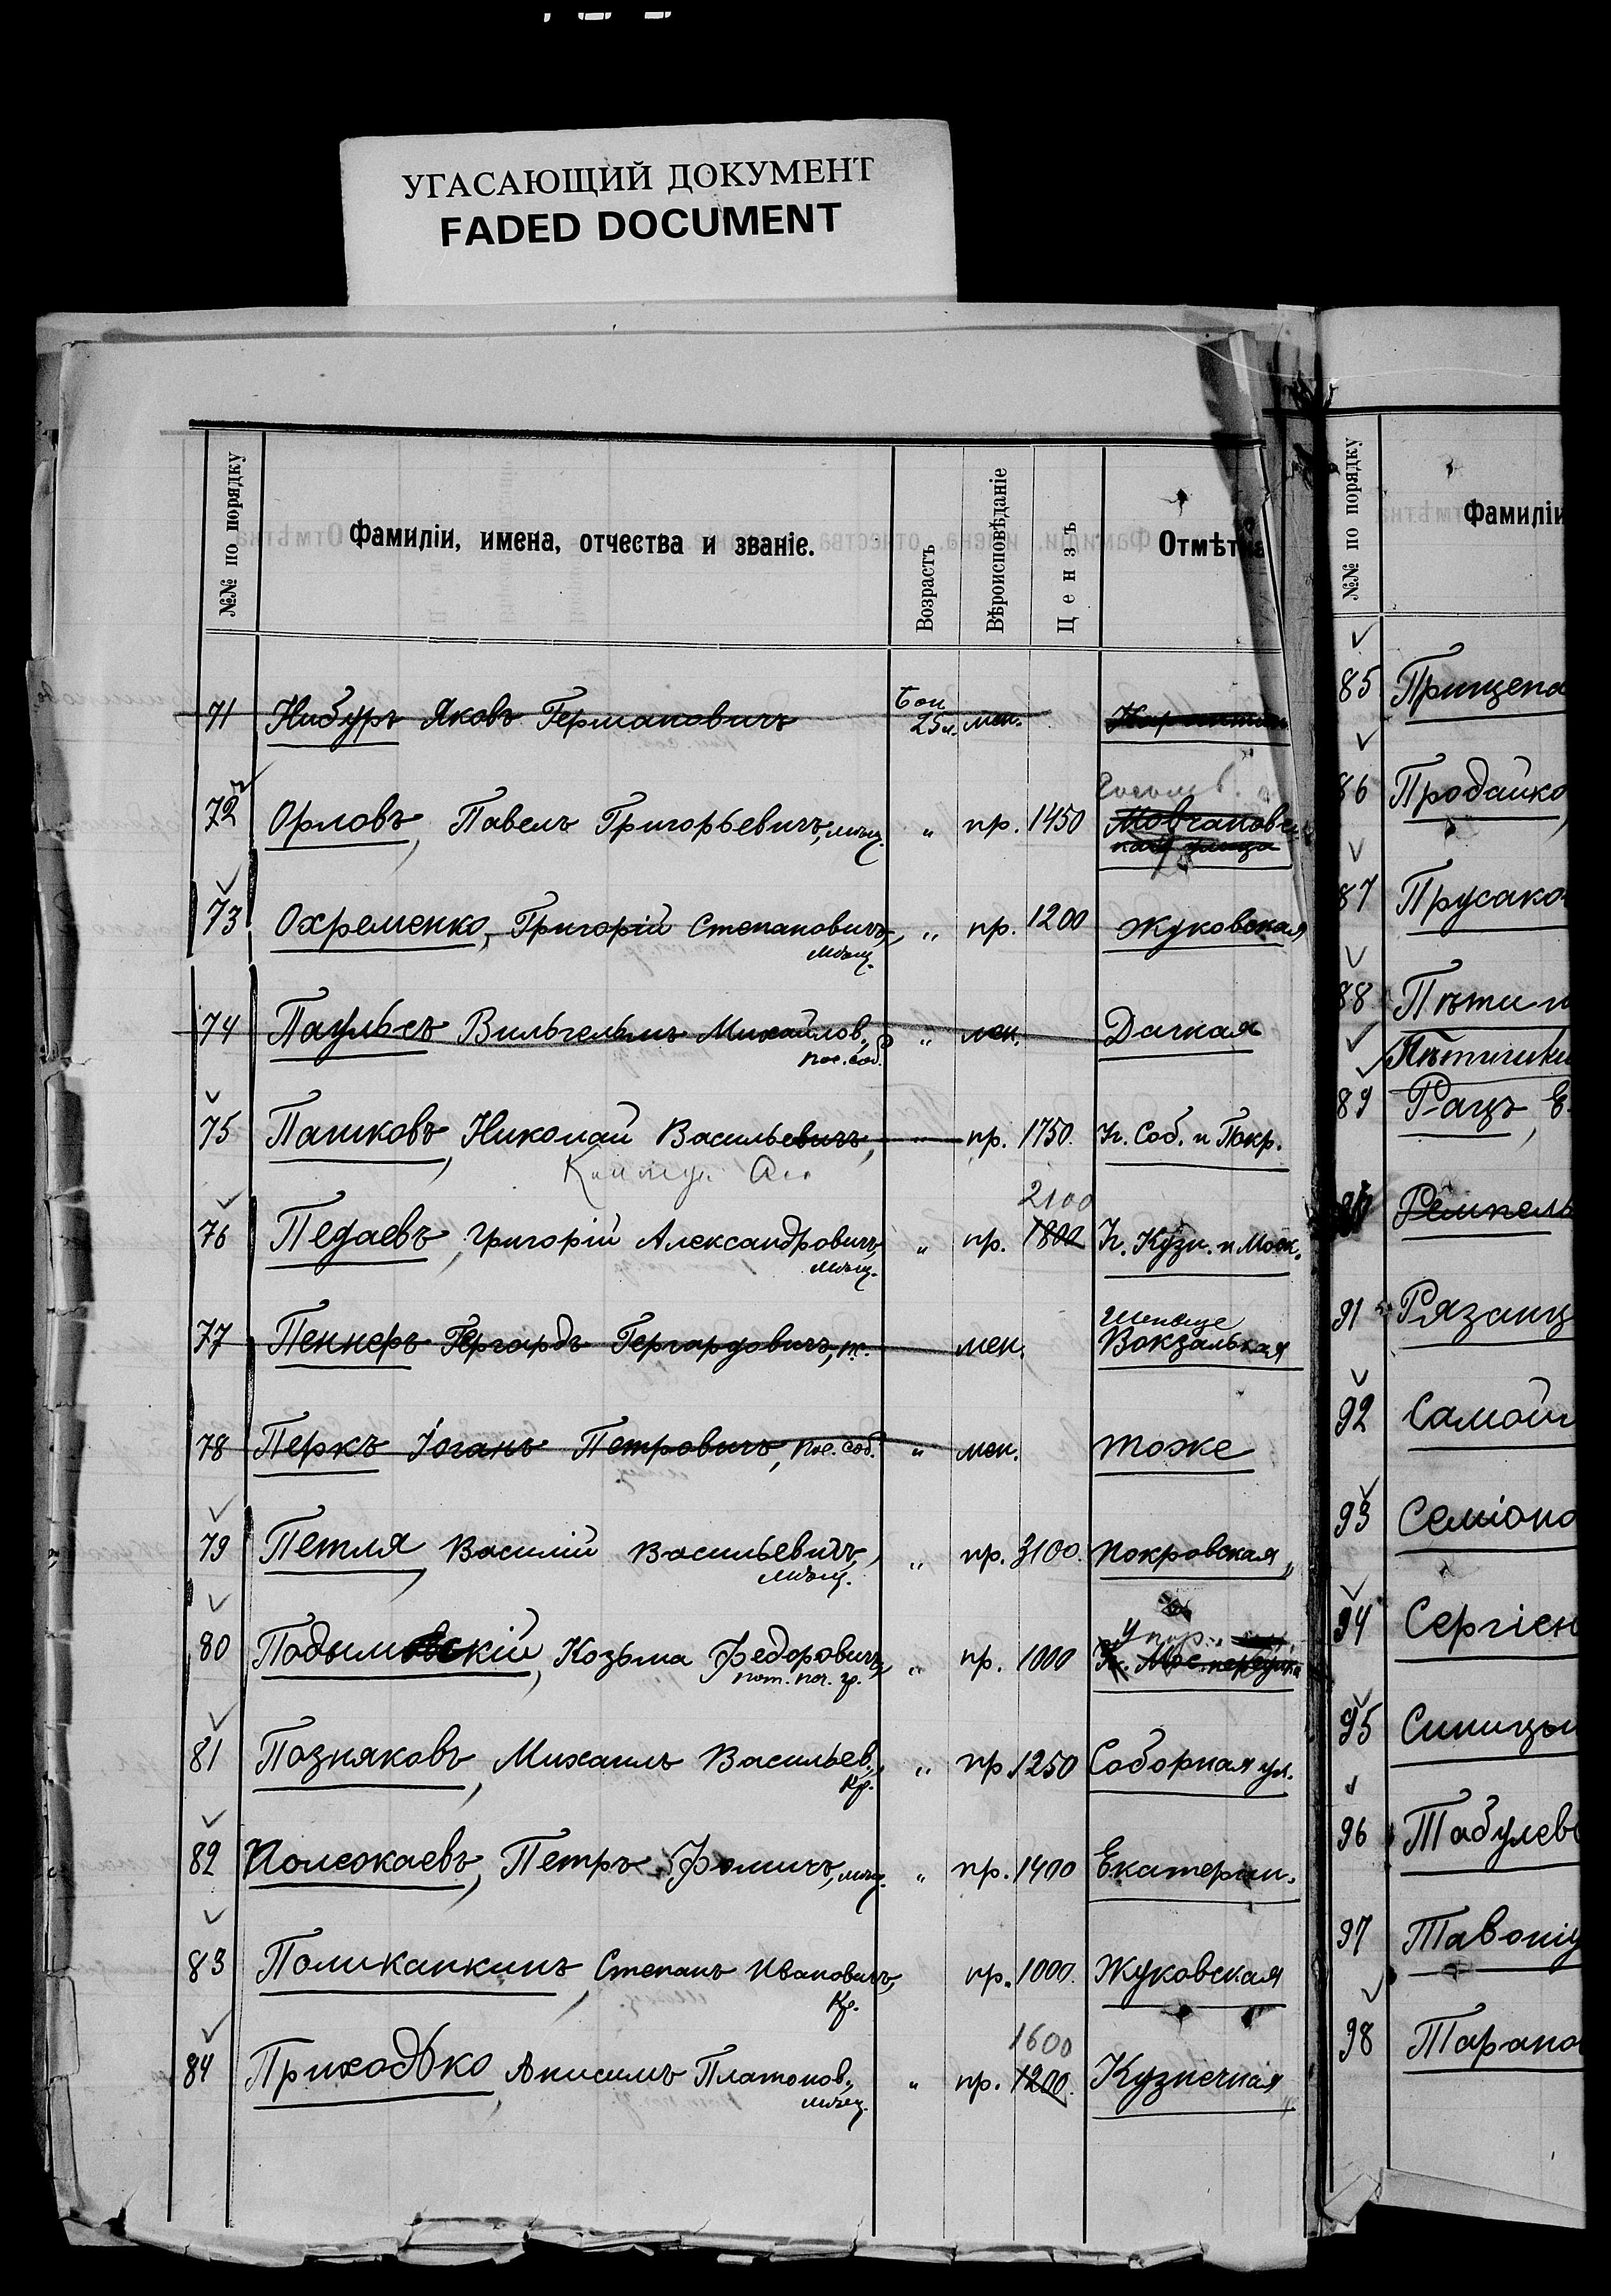 УГАСАЮЩИЙ ДОКУМЕНТ
FADED DOCUMENT
№№ по порядку
Фамиліи, имена, отчества и званіе.
Возрастъ
Вѣроисповѣданіе
Цензъ
Отмѣтка
71 Нибуръ Яковъ Германовичъ 25 л. мен.
72 Орловъ, Павелъ Григорьевичъ, мѣщ. " пр. 1450
73 Охременко, Григорій Степановичъ, " пр. 1200 Жуковская
мѣщ.
74 Паульсъ Вильгельмъ Михайлов. " мен. Дачная
пос. соб.
75 Пашковъ, Николай Васильевичъ, " пр. 1750. Уг. Соб. и Покр.
2100
76 Педаевъ, Григорій Александровичъ " пр. 1800 Уг. Кузн. и Моск.
мѣщ.
77 Пеннеръ Гергардъ Гергардовичъ, мен. Вокзальная
78 Перкъ Іоганъ Петровичъ, пос. соб. " мен. тоже
79 Петля, Василій Васильевичъ, " пр. 3100. Покровская
мѣщ.
80 Козьма Федоровичъ, " пр. 1000
пот. поч. гр.
81 Позняковъ, Михаилъ Васильев., " пр. 1250 Соборная ул.
Кр.
82 Петръ Фомичъ, мѣщ. " пр. 1400 Екатерин.
83 Поликанкинъ, Степанъ Ивановичъ, пр. 1000. Жуковская
Кр.
1600
84 Приходько, Анисимъ Платонов., " пр. 1200. Кузнечная
мѣщ.
№№ по порядку
Фамиліи
85 Прищепа
86 Продайко,
87 Прусако
88 Пѣти
89 Рацъ, Е.
Ремпель
91 Рязанц
92 Самойл
93 Семіоно
94 Сергіен
95 Синицы
96 Табулев
97 Тавоніу
98 Тарано